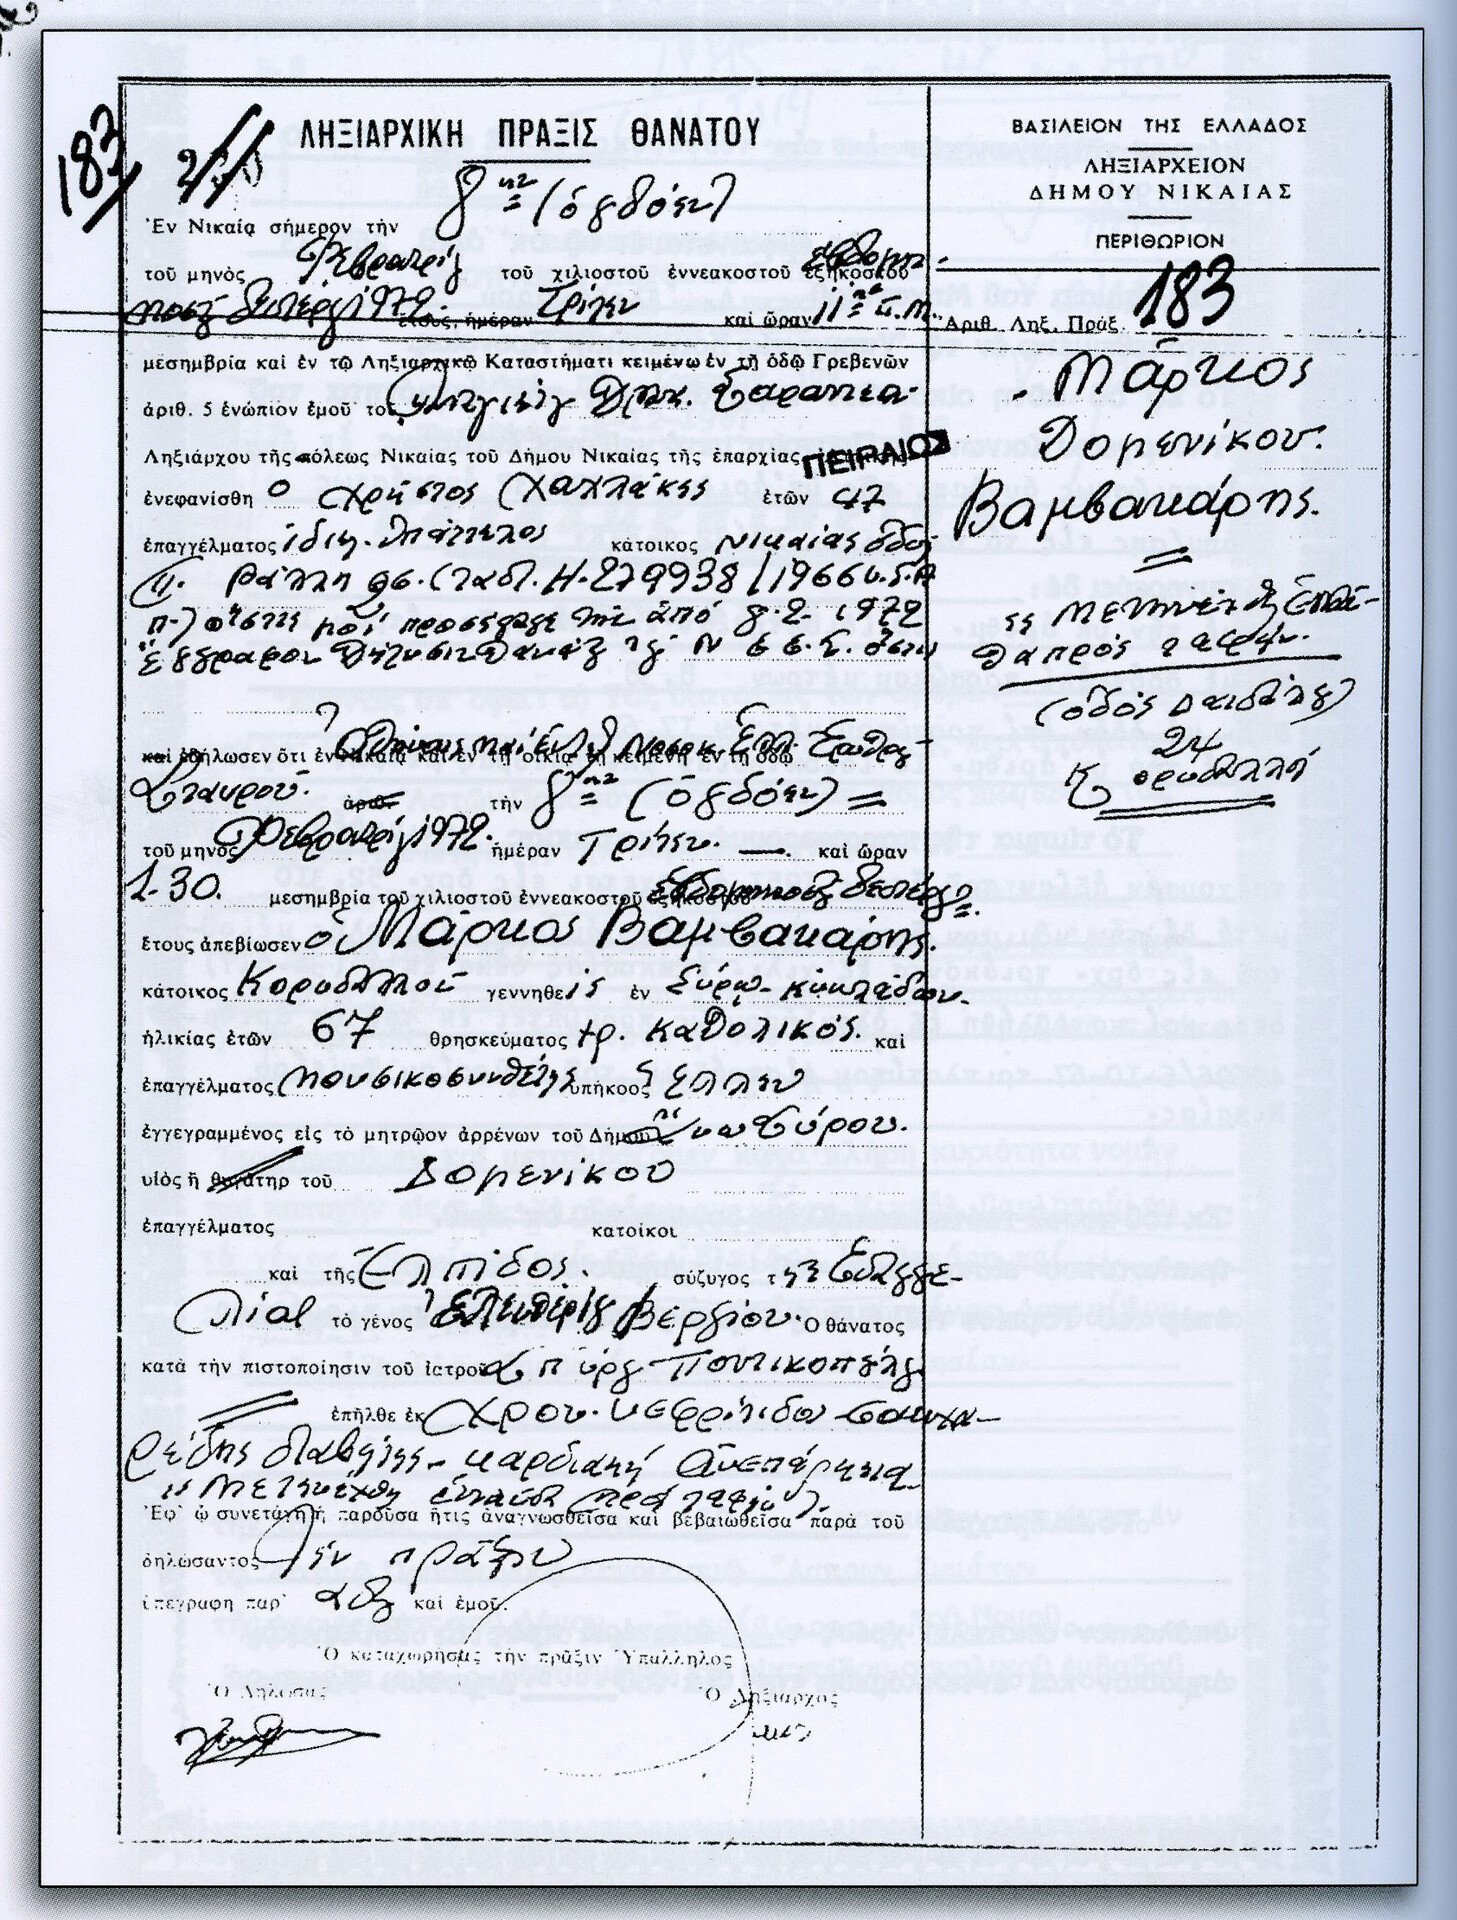 183
ΛΗΞΙΑΡΧΙΚΗ ΠΡΑΞΙΣ ΘΑΝΑΤΟΥ
Ἐν Νικαίᾳ σήμερον τὴν 8ην (ὀγδόην)
τοῦ μηνὸς Φεβρουαρίου τοῦ χιλιοστοῦ ἐννεακοστοῦ ἑξηκοστοῦ ἑβδομη-
κοστοῦ δευτέρου 1972. ἔτους, ἡμέραν Τρίτην καὶ ὥραν 11ην π.μ.
μεσημβρία καὶ ἐν τῷ Ληξιαρχικῷ Καταστήματι κειμένῳ ἐν τῇ ὁδῷ Γρεβενῶν
ἀριθ. 5 ἐνώπιον ἐμοῦ τοῦ
Ληξιάρχου τῆς πόλεως Νικαίας τοῦ Δήμου Νικαίας τῆς ἐπαρχίας ΠΕΙΡΑΙΩΣ
ἐνεφανίσθη ὁ Χρῆστος Χαχλάκης ἐτῶν 47
ἐπαγγέλματος ἰδιωτ. ὑπάλληλος κάτοικος Νικαίας ὁδὸς
Π. Ράλλη 96. (ταυτ. Η. 279938/1966
ὅστις μοὶ προσήγαγε τὴν ἀπὸ 8-2-1972
ἔγγραφον δήλωσιν θανάτου
καὶ ἐδήλωσεν ὅτι ἐν Νικαίᾳ καὶ ἐν τῇ οἰκίᾳ τῇ κειμένῃ ἐν τῇ ὁδῷ
Σταυροῦ. ἀριθ. τὴν 8ην (ὀγδόην)
τοῦ μηνὸς Φεβρουαρίου 1972. ἡμέραν Τρίτην. καὶ ὥραν
1.30. μεσημβρία τοῦ χιλιοστοῦ ἐννεακοστοῦ ἑξηκοστοῦ ἑβδομηκοστοῦ δευτέρου
ἔτους ἀπεβίωσεν ὁ Μάρκος Βαμβακάρης.
κάτοικος Κορυδαλλοῦ γεννηθείς ἐν Σύρῳ-Κυκλάδων.
ἡλικίας ἐτῶν 67 θρησκεύματος χρ. καθολικός. καὶ
ἐπαγγέλματος Μουσικοσυνθέτης ὑπήκοος Ἕλλην
ἐγγεγραμμένος εἰς τὸ μητρῷον ἀρρένων τοῦ Δήμου Ἄνω Σύρου.
υἱὸς ἢ θυγάτηρ τοῦ Δομενίκου
ἐπαγγέλματος κατοίκοι
καὶ τῆς Ἐλπίδος. σύζυγος τῆς Εὐαγγε-
λίας τὸ γένος Ἐλευθερίου Βεργίου. Ὁ θάνατος
κατὰ τὴν πιστοποίησιν τοῦ ἰατροῦ Σπύρου
ἐπῆλθε ἐκ Χρον. νεφρίτιδος σακχα-
ρώδης διαβήτης - καρδιακή ἀνεπάρκεια
Μετηνέχθη ἐνταῦθα πρὸς ταφήν.
Ἐφ' ᾧ συνετάγη ἡ παροῦσα ἥτις ἀναγνωσθεῖσα καὶ βεβαιωθεῖσα παρὰ τοῦ
δηλώσαντος τὴν πρᾶξιν
ὑπεγράφη παρ' αὐτοῦ καὶ ἐμοῦ.
Ὁ καταχωρήσας τὴν πρᾶξιν Ὑπάλληλος
Ὁ Δηλώσας Ὁ Ληξίαρχος
ΒΑΣΙΛΕΙΟΝ ΤΗΣ ΕΛΛΑΔΟΣ
ΛΗΞΙΑΡΧΕΙΟΝ
ΔΗΜΟΥ ΝΙΚΑΙΑΣ
ΠΕΡΙΘΩΡΙΟΝ
Ἀριθ. Ληξ. Πράξ. 183
Μάρκος
Δομενίκου.
Βαμβακάρης.
Μετηνέχθη ἐνταῦ-
θα πρὸς ταφήν.
(ὁδὸς Δαιδάλου
24
Κορυδαλλοῦ